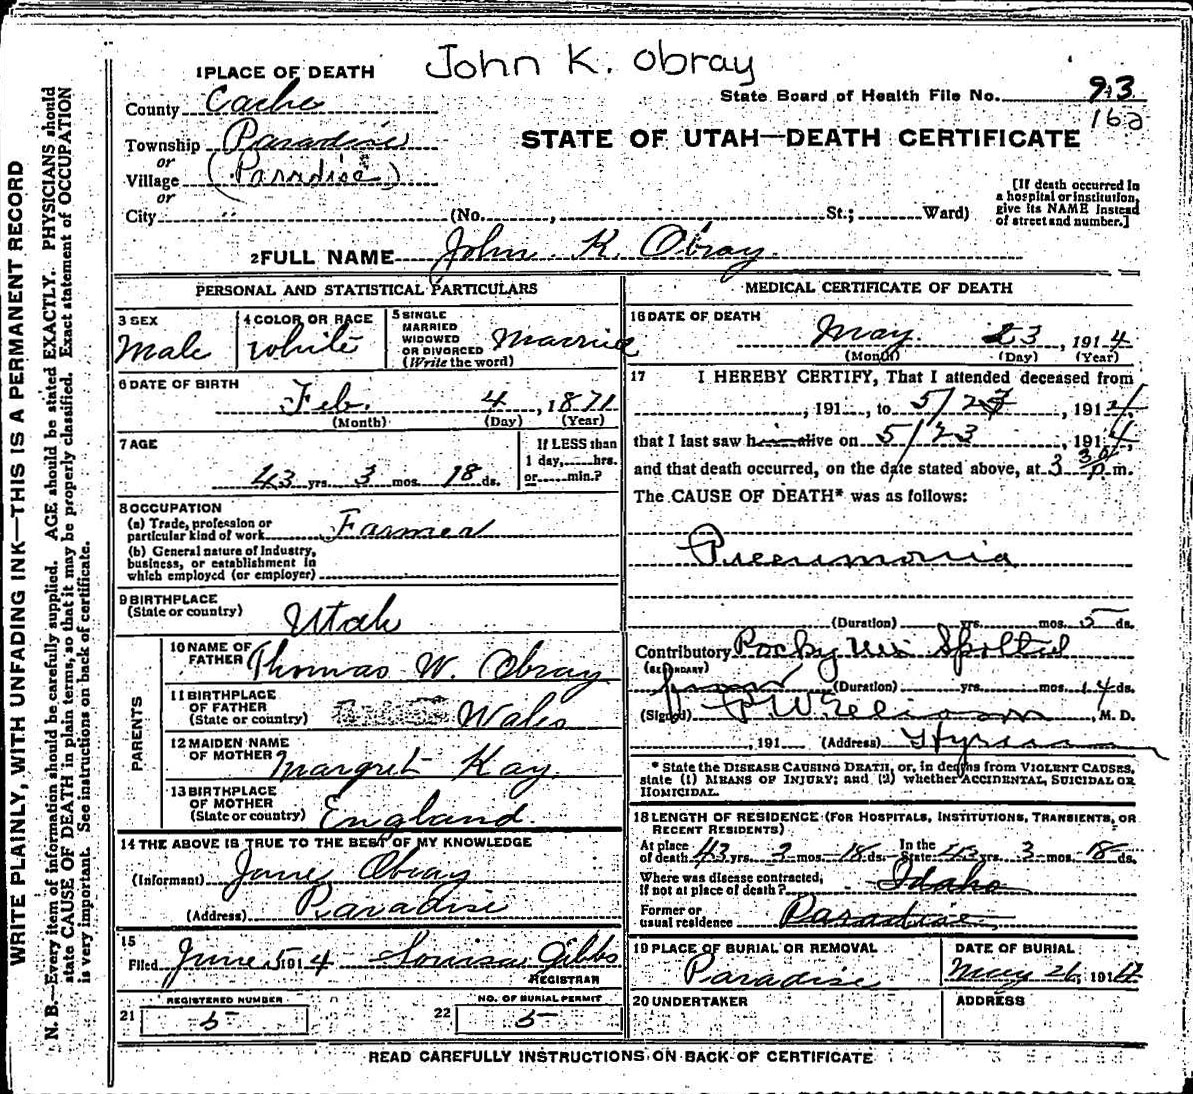 John K. Obray
1 PLACE OF DEATH
County Cache
State Board of Health File No. 93
162
Township Paradise
or
Village (Paradise)
or
City
STATE OF UTAH—DEATH CERTIFICATE
(No. , St.; Ward)
[If death occurred in
a hospital or institution,
give its NAME instead
of street and number.]
2 FULL NAME John K. Obray
PERSONAL AND STATISTICAL PARTICULARS
3 SEX
Male
4 COLOR OR RACE
White
5 SINGLE
MARRIED
WIDOWED
OR DIVORCED
(Write the word)
Married
6 DATE OF BIRTH
Feb. 4, 1871
(Month) (Day) (Year)
7 AGE
43 yrs. 3 mos. 18 ds.
If LESS than
1 day, hrs.
or min.?
8 OCCUPATION
(a) Trade, profession or
particular kind of work Farmer
(b) General nature of Industry,
business, or establishment in
which employed (or employer)
9 BIRTHPLACE
(State or country) Utah
PARENTS
10 NAME OF
FATHER Thomas W. Obray
11 BIRTHPLACE
OF FATHER
(State or country) Wales
12 MAIDEN NAME
OF MOTHER Margret Kay
13 BIRTHPLACE
OF MOTHER
(State or country) England.
14 THE ABOVE IS TRUE TO THE BEST OF MY KNOWLEDGE
(Informant) Obray
(Address) Paradise
15
Filed June 5 1914 Louisa Gibbs
REGISTRAR
REGISTERED NUMBER
21 5
NO. OF BURIAL PERMIT
22 5
MEDICAL CERTIFICATE OF DEATH
16 DATE OF DEATH
May 23, 1914
(Month) (Day) (Year)
17 I HEREBY CERTIFY, That I attended deceased from
, 191 , to 5/23, 1914,
that I last saw h alive on 5/23, 1914,
and that death occurred, on the date stated above, at 3 30 p m.
The CAUSE OF DEATH* was as follows:
Pneumonia
(Duration) yrs. mos. 5 ds.
Contributory Rocky Mt Spotted
(SECONDARY)
fever (Duration) yrs. mos. 14 ds.
(Signed) , M. D.
, 191 (Address) Hyrum
* State the DISEASE CAUSING DEATH, or, in deaths from VIOLENT CAUSES,
state (1) MEANS OF INJURY; and (2) whether ACCIDENTAL, SUICIDAL OR
HOMICIDAL.
18 LENGTH OF RESIDENCE (FOR HOSPITALS, INSTITUTIONS, TRANSIENTS, OR
RECENT RESIDENTS)
At place
of death 43 yrs. 3 mos. 18 ds.
In the
State 43 yrs. 3 mos. 18 ds.
Where was disease contracted,
if not at place of death? Idaho
Former or
usual residence Paradise
19 PLACE OF BURIAL OR REMOVAL
Paradise
DATE OF BURIAL
May 26, 1914
20 UNDERTAKER
ADDRESS
READ CAREFULLY INSTRUCTIONS ON BACK OF CERTIFICATE
WRITE PLAINLY, WITH UNFADING INK—THIS IS A PERMANENT RECORD
N. B.—Every item of information should be carefully supplied. AGE should be stated EXACTLY. PHYSICIANS should
state CAUSE OF DEATH in plain terms, so that it may be properly classified. Exact statement of OCCUPATION
is very important. See instructions on back of certificate.